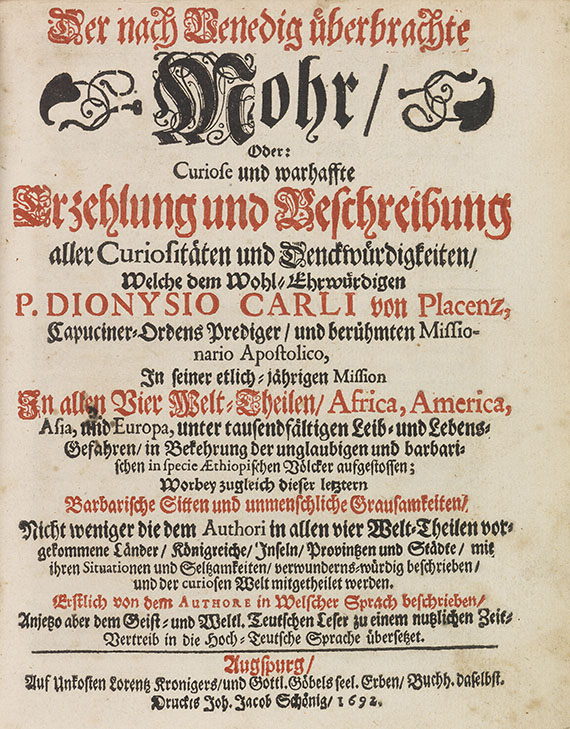 Der nach Venedig überbrachte
Mohr/
Oder:
Curiose und warhaffte
Erzehlung und Beschreibung
aller Curiositäten und Denckwürdigkeiten/
Welche dem Wohl-Ehrwürdigen
P. DIONYSIO CARLI von Placenz,
Capuciner-Ordens Prediger/ und berühmten Missio-
nario Apostolico,
In seiner etlich-jährigen Mission
In allen Vier Welt-Theilen/ Africa, America,
Asia, und Europa, unter tausendfältigen Leib- und Lebens-
Gefahren/ in Bekehrung der unglaubigen und barbari-
schen in specie Æthiopischen Völcker aufgestossen;
Worbey zugleich dieser letztern
Barbarische Sitten und unmenschliche Grausamkeiten/
Nicht weniger die dem Authori in allen vier Welt-Theilen vor-
gekommene Länder/ Königreiche/ Inseln/ Provintzen und Städte/ mit
ihren Situationen und Seltzamkeiten/ verwunderns-würdig beschrieben/
und der curiosen Welt mitgetheilet werden.
Erstlich von dem AUTHORE in Welscher Sprach beschrieben/
Anjetzo aber dem Geist- und Weltl. Teutschen Leser zu einem nutzlichen Zeit-
Vertreib in die Hoch-Teutsche Sprache übersetzet.
Augspurg/
Auf Unkosten Lorentz Kronigers/ und Gottl. Göbels seel. Erben/ Buchh. daselbst.
Druckts Joh. Jacob Schönig/ 1692.